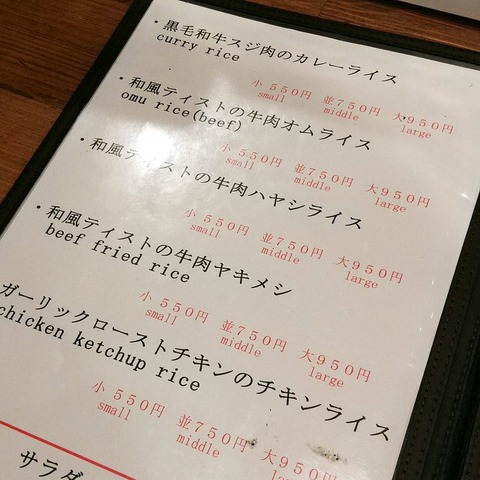 ・黒毛和牛スジ肉のカレーライス
curry rice
小 550円 並750円 大950円
small middle large
・和風テイストの牛肉オムライス
omu rice(beef)
小 550円 並750円 大950円
small middle large
・和風テイストの牛肉ハヤシライス
小 550円 並750円 大950円
small middle large
・和風テイストの牛肉ヤキメシ
beef fried rice
小 550円 並750円 大950円
small middle large
ガーリックローストチキンのチキンライス
chicken ketchup rice
小 550円 並750円 大950円
small middle large
サラダ